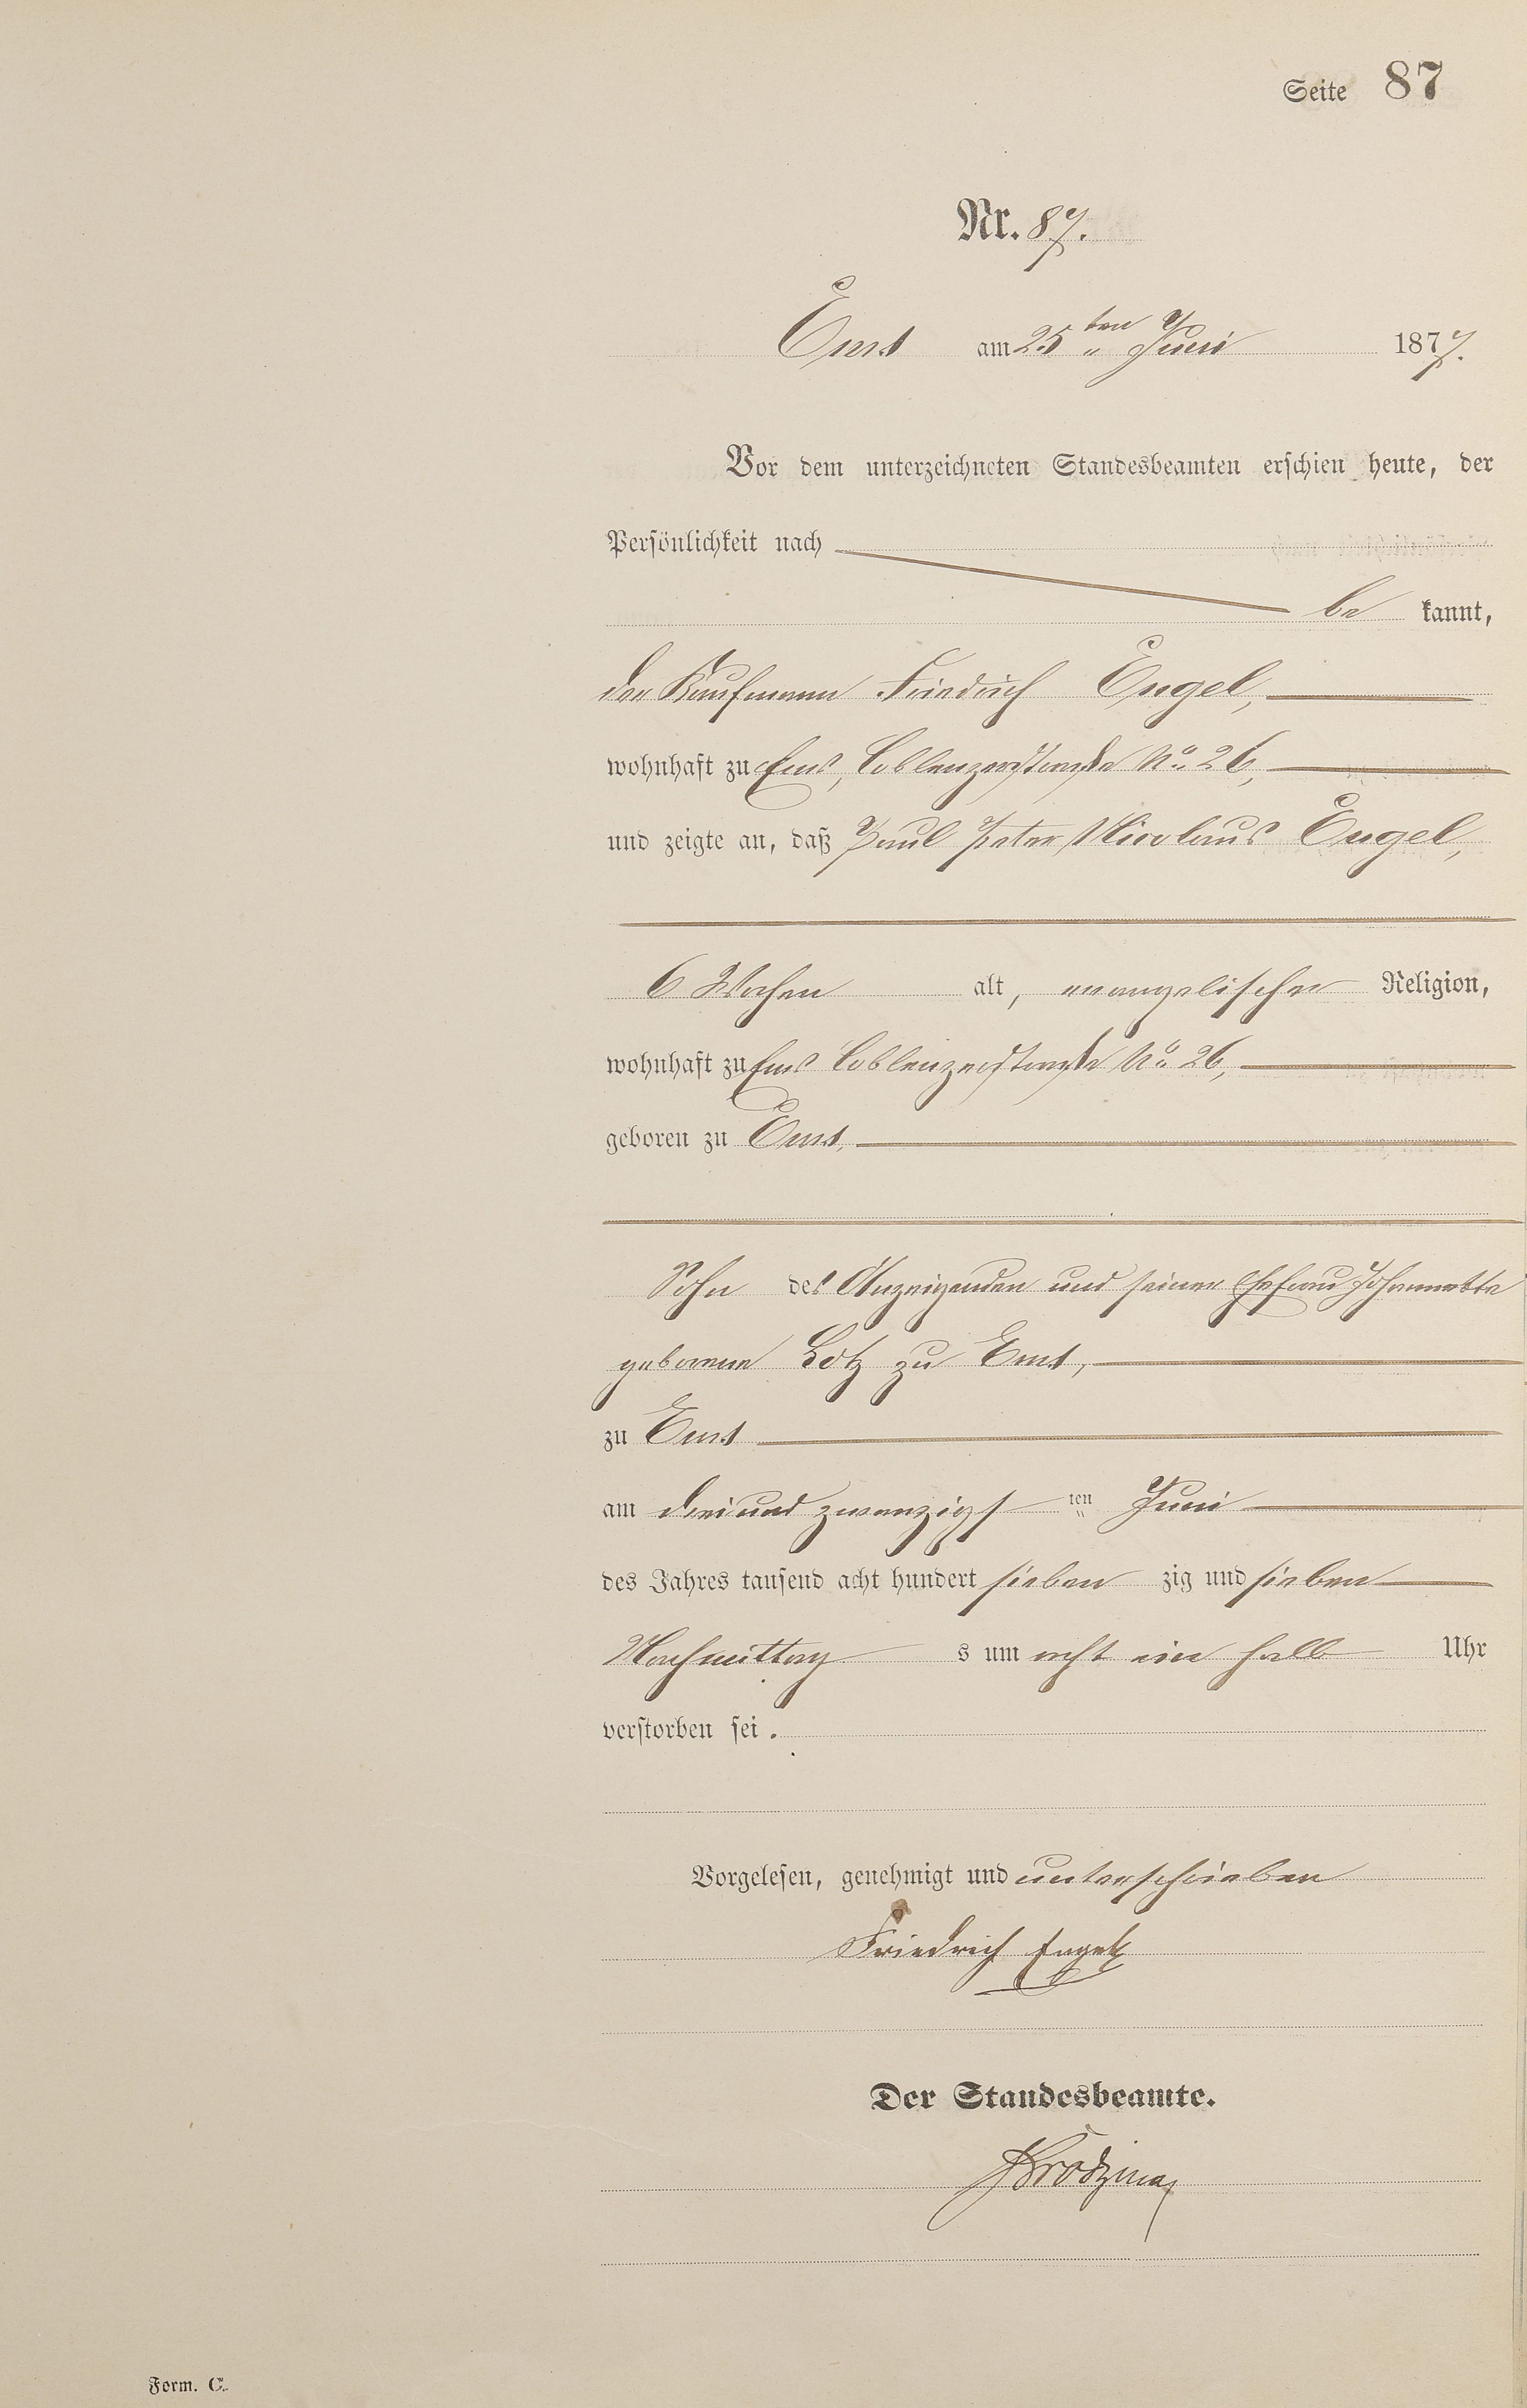 Seite 87
Nr. 87.
Ems am 25ten Juni 1877.
Vor dem unterzeichneten Standesbeamten erschien heute, der
Persönlichkeit nach
be kannt,
der Kaufmann Friedrich Engel,
wohnhaft zu Ems, Coblenzerstraße No. 26,
und zeigte an, daß Paul Peter Nicolaus Engel,
6 Wochen alt, evangelischer Religion,
wohnhaft zu Ems Coblenzerstraße No. 26,
geboren zu Ems,
Sohn des Anzeigenden und seiner Ehefrau Johannette
geborene Lotz zu Ems,
zu Ems
am drei und zwanzigst ten Juni
des Jahres tausend acht hundert sieben zig und sieben
Nachmittag s um acht ein halb Uhr
verstorben sei.
Vorgelesen, genehmigt und unterschrieben
Friedrich Engel
Der Standesbeamte.
Form. C.